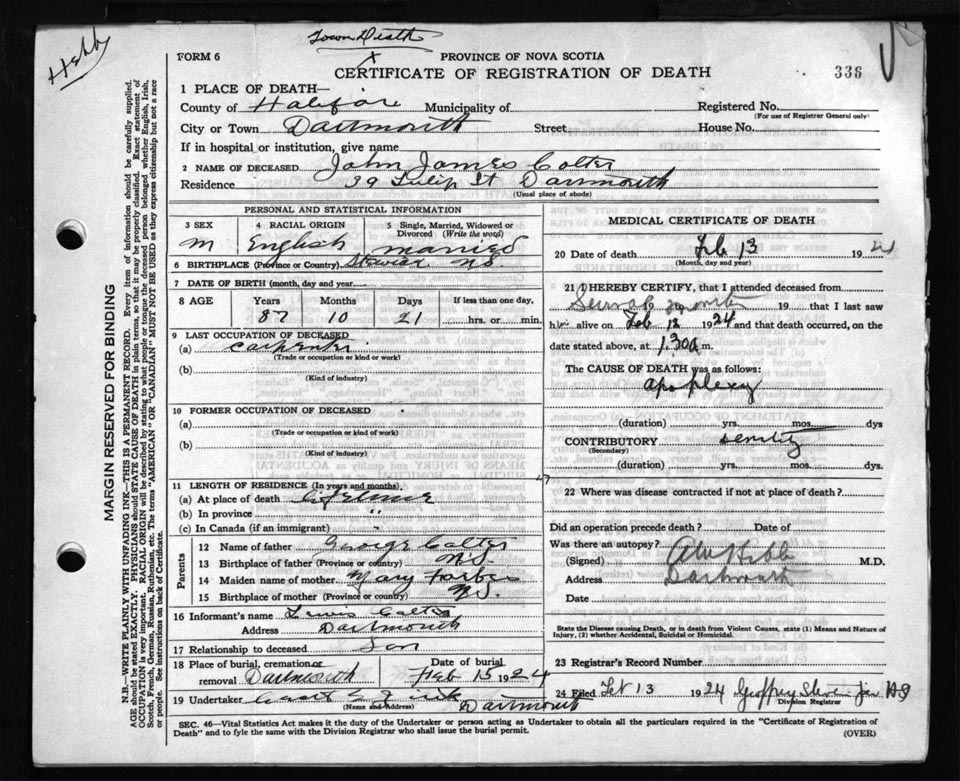 Town Death
Hebb
FORM 6
PROVINCE OF NOVA SCOTIA
X
CERTIFICATE OF REGISTRATION OF DEATH
336
1 PLACE OF DEATH—
County of Halifax Municipality of
Registered No.
(For use of Registrar General only)
City or Town Dartmouth Street House No.
If in hospital or institution, give name
2 NAME OF DECEASED John James Colter
Residence 39 Tulip St Dartmouth
(Usual place of abode)
PERSONAL AND STATISTICAL INFORMATION
3 SEX 4 RACIAL ORIGIN 5 Single, Married, Widowed or Divorced (Write the word)
M English married
6 BIRTHPLACE (Province or Country) N.S.
7 DATE OF BIRTH (month, day and year)
8 AGE Years Months Days If less than one day,
87 10 21 hrs. or min.
9 LAST OCCUPATION OF DECEASED
(a) Carpenter
(Trade or occupation or kind or work)
(b)
(Kind of industry)
10 FORMER OCCUPATION OF DECEASED
(a)
(Trade or occupation or kind of work)
(b)
(Kind of industry)
11 LENGTH OF RESIDENCE (In years and months)
(a) At place of death life time
(b) In province "
(c) In Canada (if an immigrant) "
Parents
12 Name of father George Colter
13 Birthplace of father (Province or country) N.S.
14 Maiden name of mother Mary Forbes
15 Birthplace of mother (Province or country) N.S.
16 Informant's name Lewis Colter
Address Dartmouth
17 Relationship to deceased Son
18 Place of burial, cremation or removal Dartmouth
Date of burial Feb 15 1924
19 Undertaker
(Name and Address) Dartmouth
MEDICAL CERTIFICATE OF DEATH
20 Date of death Feb 13 1924
(Month, day and year)
21 I HEREBY CERTIFY, that I attended deceased from
Several 19 months 19 that I last saw
him alive on Feb 12 1924 and that death occurred, on the
date stated above, at 1.30 a m.
The CAUSE OF DEATH was as follows:
apoplexy
(duration) yrs. mos. dys
CONTRIBUTORY senility
(Secondary)
(duration) yrs. mos. dys.
22 Where was disease contracted if not at place of death?
Did an operation precede death? Date of
Was there an autopsy?
(Signed) M.D.
Address Dartmouth
Date
State the Disease causing Death, or in death from Violent Causes, state (1) Means and Nature of
Injury, (2) whether Accidental, Suicidal or Homicidal.
23 Registrar's Record Number
24 Filed Feb 13 1924 Geoffrey
Division Registrar
SEC. 46—Vital Statistics Act makes it the duty of the Undertaker or person acting as Undertaker to obtain all the particulars required in the "Certificate of Registration of
Death" and to fyle the same with the Division Registrar who shall issue the burial permit.
(OVER)
MARGIN RESERVED FOR BINDING
N.B.—WRITE PLAINLY WITH UNFADING INK—THIS IS A PERMANENT RECORD. Every item of information should be carefully supplied.
AGE should be stated EXACTLY. PHYSICIANS should STATE CAUSE OF DEATH in plain terms, so that it may be properly classified. Exact statement of
OCCUPATION is very important. RACIAL ORIGIN will be described by stating to what people or tongue the deceased person belonged whether English, Irish,
Scotch, French, German, Russian, Ruthenian, etc. The terms "AMERICAN" OR "CANADIAN" MUST NOT BE USED as they express citizenship but not a race
or people. See instructions on back of Certificate.